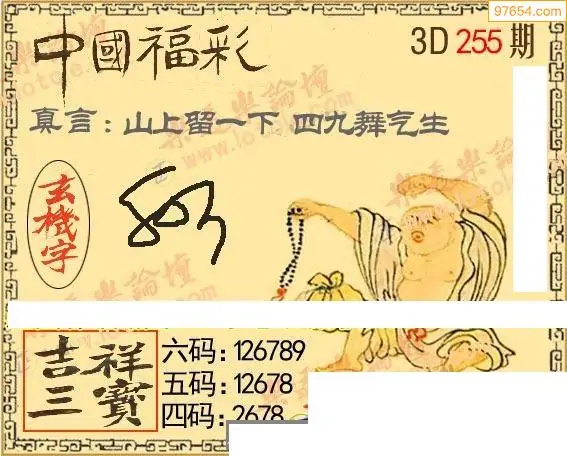 97654.com
中國福彩 3D 255 期
真言：山上留一下 四九舞气生
玄機字
吉祥三寶
六码：126789
五码：12678
四码：2678